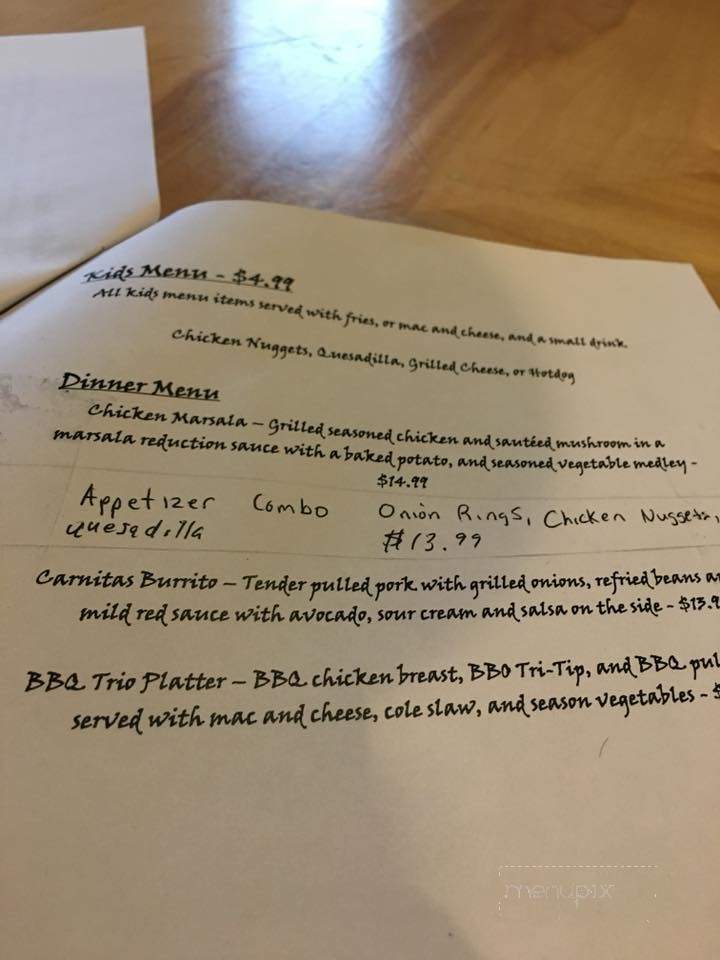 Kids Menu - $4.99
All kids menu items served with fries, or mac and cheese, and a small drink.
Chicken Nuggets, Quesadilla, Grilled Cheese, or Hotdog
Dinner Menu
Chicken Marsala – Grilled seasoned chicken and sautéed mushroom in a
marsala reduction sauce with a baked potato, and seasoned vegetable medley -
$14.99
Appetizer Combo Onion Rings, Chicken Nuggets,
Quesadilla $13.99
Carnitas Burrito – Tender pulled pork with grilled onions, refried beans
mild red sauce with avocado, sour cream and salsa on the side - $13.9
BBQ Trio Platter – BBQ chicken breast, BBQ Tri-Tip, and BBQ pul
served with mac and cheese, cole slaw, and season vegetables - $
menupix